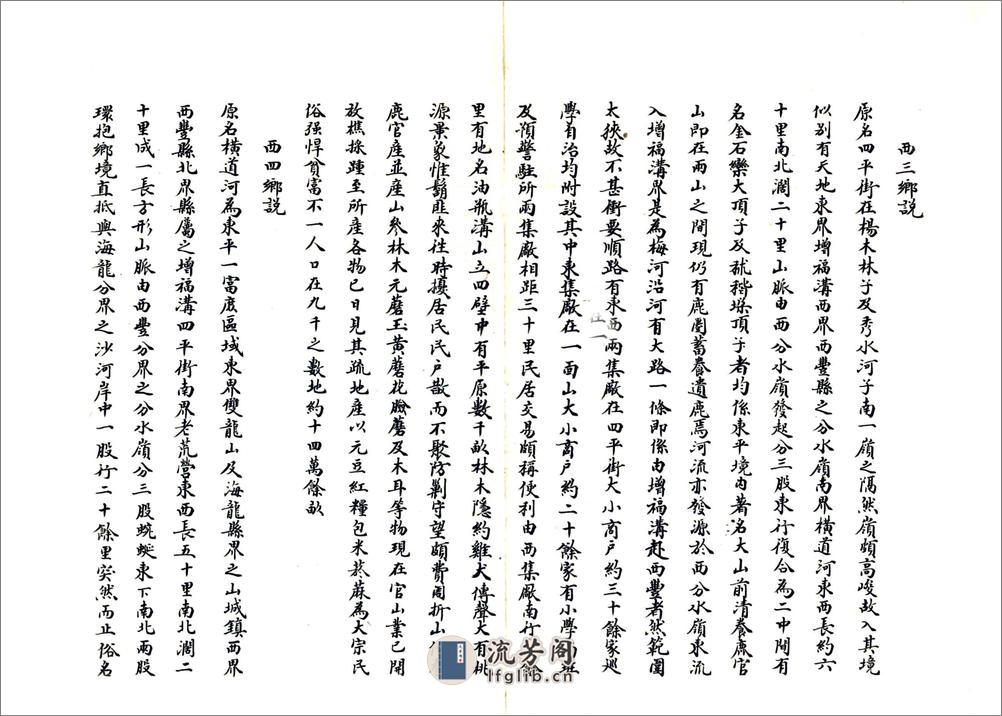 西三鄉說
原名四平街在楊木林子及秀水河子南一嶺之隔然嶺頗高峻故入其境
似别有天地東界增福溝西界西豐縣之分水嶺南界橫道河東西長約六
十里南北濶二十里山脈由西分水嶺發起分三股東行復合為二中間有
名金石欒大頂子及秫稭垜頂子者均係東平境內著名大山前清養鹿官
山即在兩山之間現仍有鹿圈蓄養遺鹿焉河流亦發源於西分水嶺東流
入增福溝界是為梅河沿河有大路一條即係由增福溝赴西豐者然範圍
太狹故不甚衝要順路有東西兩集廠在四平街大小商戶約三十餘家巡
學自治均附設其中東集廠在一面山大小商戶約二十餘家有小學
及預警駐所兩集廠相距三十里民居交易頗稱便利由西集廠南行 餘
里有地名油瓶溝山立四壁中有平原數千畝林木隱約雞犬傳聲大有桃
源景象惟鬍匪來往時擾居民民戶散而不聚防剿守望頗費周折山
鹿官產並產山參林木元蘑玉黃蘑花臉蘑及木耳等物現在官山業已開
放樵採踵至所產各物已日見其疏地產以元豆紅糧包米菸蔴為大宗民
俗强悍貧富不一人口在九千之數地約十四萬餘畝
西四鄉說
原名橫道河為東平一富庶區域東界雙龍山及海龍縣界之山城鎮西界
西豐縣北界縣屬之增福溝四平街南界老荒營東西長五十里南北濶二
十里成一長方形山脈由西豐分界之分水嶺分三股蜿蜒東下南北兩股
環抱鄉境直抵與海龍分界之沙河岸中一股行二十餘里突然而止俗名
流芳阁
lfglib.cn